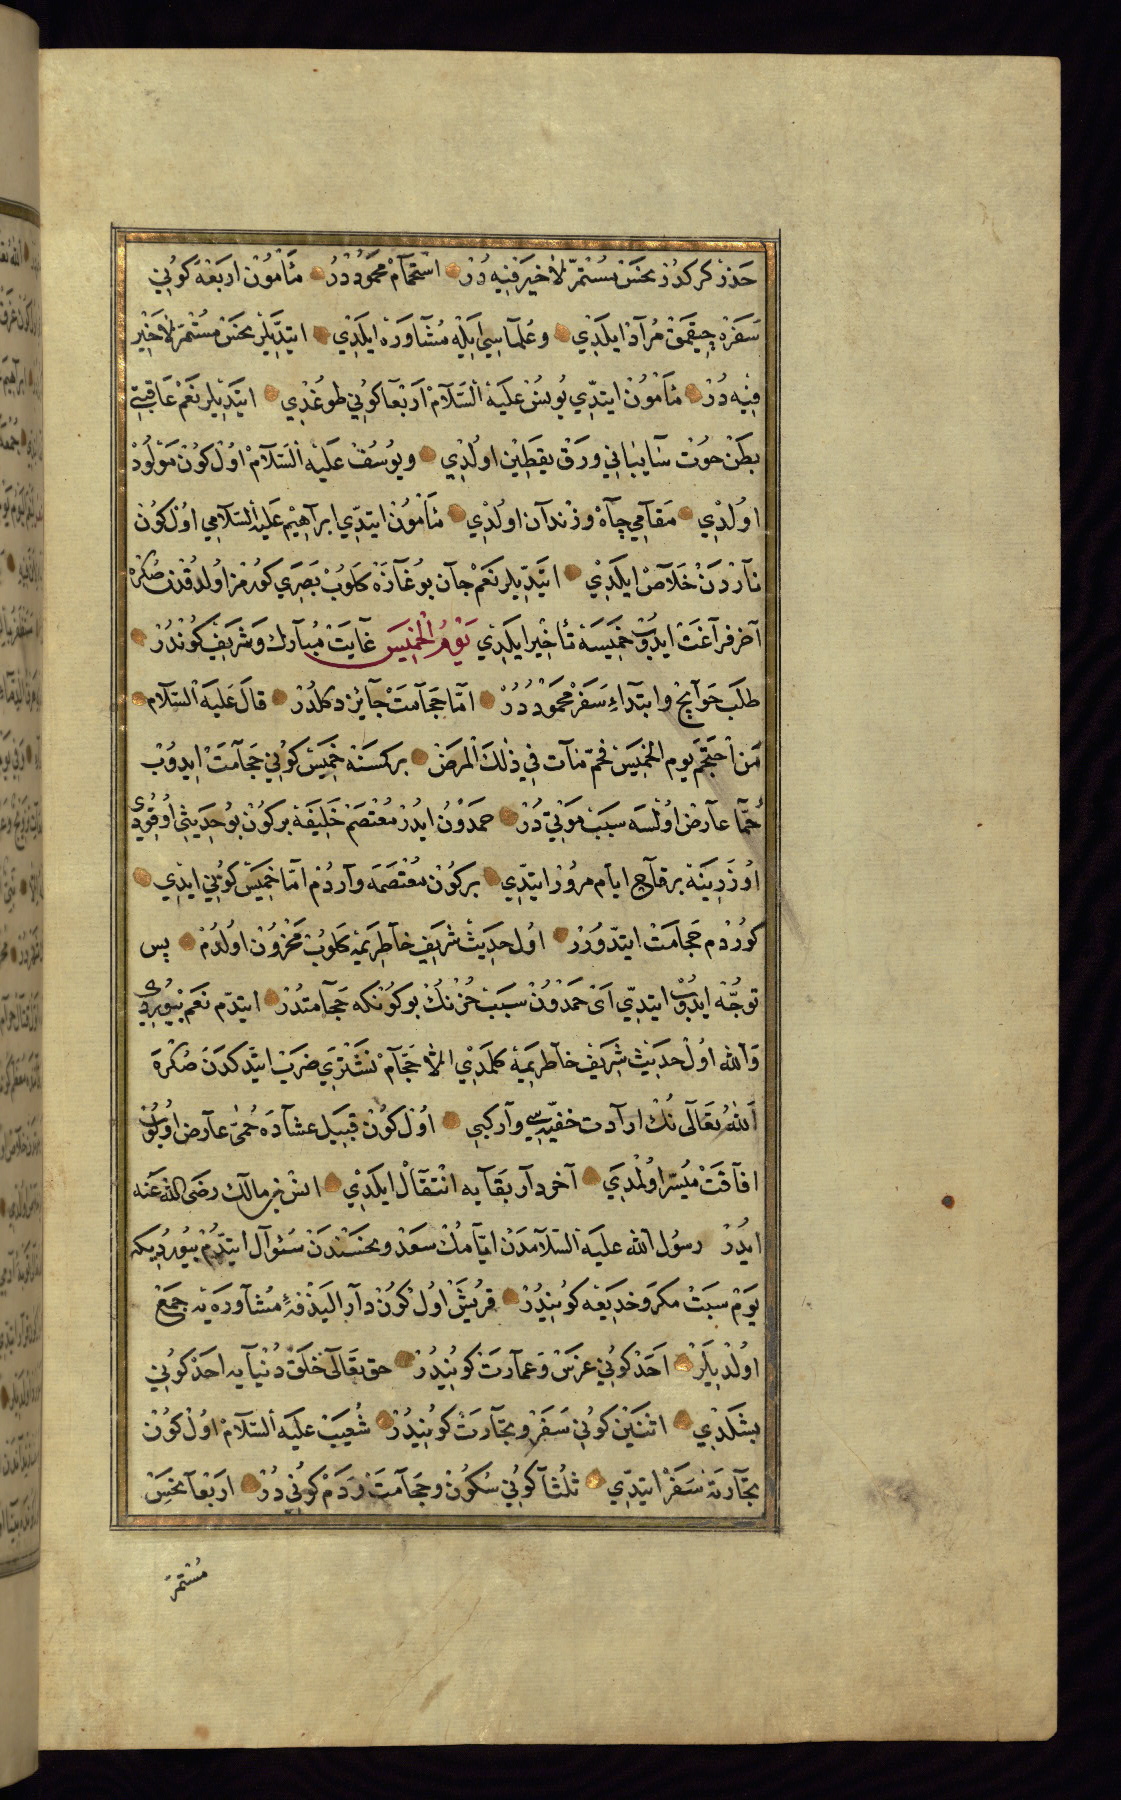 حذر كركدر نحس مستمر لا خير فيه در استحمام محمود در مأمون اربعه كوني
سفره چيقمق مراد ايلدي و علماسي ايله مشاوره ايلدي ايتديلر نحس مستمر لا خير
فيه در مأمون ايتدي يونس عليه السلام اربعا كوني طوغدي ايتديلر نعم عاقبتي
بطن حوت سايباني ورق يقطين اولدي و يوسف عليه السلام اول كون مولود
اولدي مقامي چاه و زندان اولدي مأمون ايتدي ابراهيم عليه السلامي اول كون
ناردن خلاص ايلدي ايتديلر نعم جان بوغازه كلوب بصري كورمز اولدقدن صكره
آخر فراغت ايدوب خميسه تأخير ايلدي يوم الخميس غايت مبارك و شريف كوندر
طلب حوايج و ابتداء سفر محمود در اما حجامت جايز دكلدر قال عليه السلام
من احتجم يوم الخميس فحم مات في ذلك المرض بر كسنه خميس كوني حجامت ايدوب
حما عارض اولسه سبب موتي در حمدون ايدر معتصم خليفه بر كون بو حديثي اوقودي
اوزرينه بر قاچ ايام مرور ايتدي بر كون معتصمه واردم اما خميس كوني ايدي
كوردم حجامت ايتدورر اول حديث شريف خاطريمه كلوب محزون اولدم پس
توجه ايدوب ايتدي اى حمدون سبب حزنك بو كونكه حجامتدر ايتدم نعم بيوردي
والله اول حديث شريف خاطريمه كلمدي الا حجام نشتري ضرب ايتدكدن صكره
الله تعالى نك ارادت خفيه سي وار كبي اول كون قبيل عشاده حمى عارض اولوب
افاقت ميسر اولمدي آخر دار بقايه انتقال ايلدي انس بن مالك رضى الله عنه
ايدر رسول الله عليه السلامدن ايامك سعد و نحسندن سئوال ايتدم بيورديكه
يوم سبت مكر و خديعه كونيدر قريش اول كون دار الندفه مشاوره يه جمع
اولديلر احد كوني غرس و عمارت كونيدر حق تعالى خلق دنيايه احد كوني
بشلدي اثنين كوني سفر و تجارت كونيدر شعيب عليه السلام اول كون
تجارته سفر ايتدي ثلثا كوني سكون و حجامت و دم كوني در اربعا نحس
مستمر